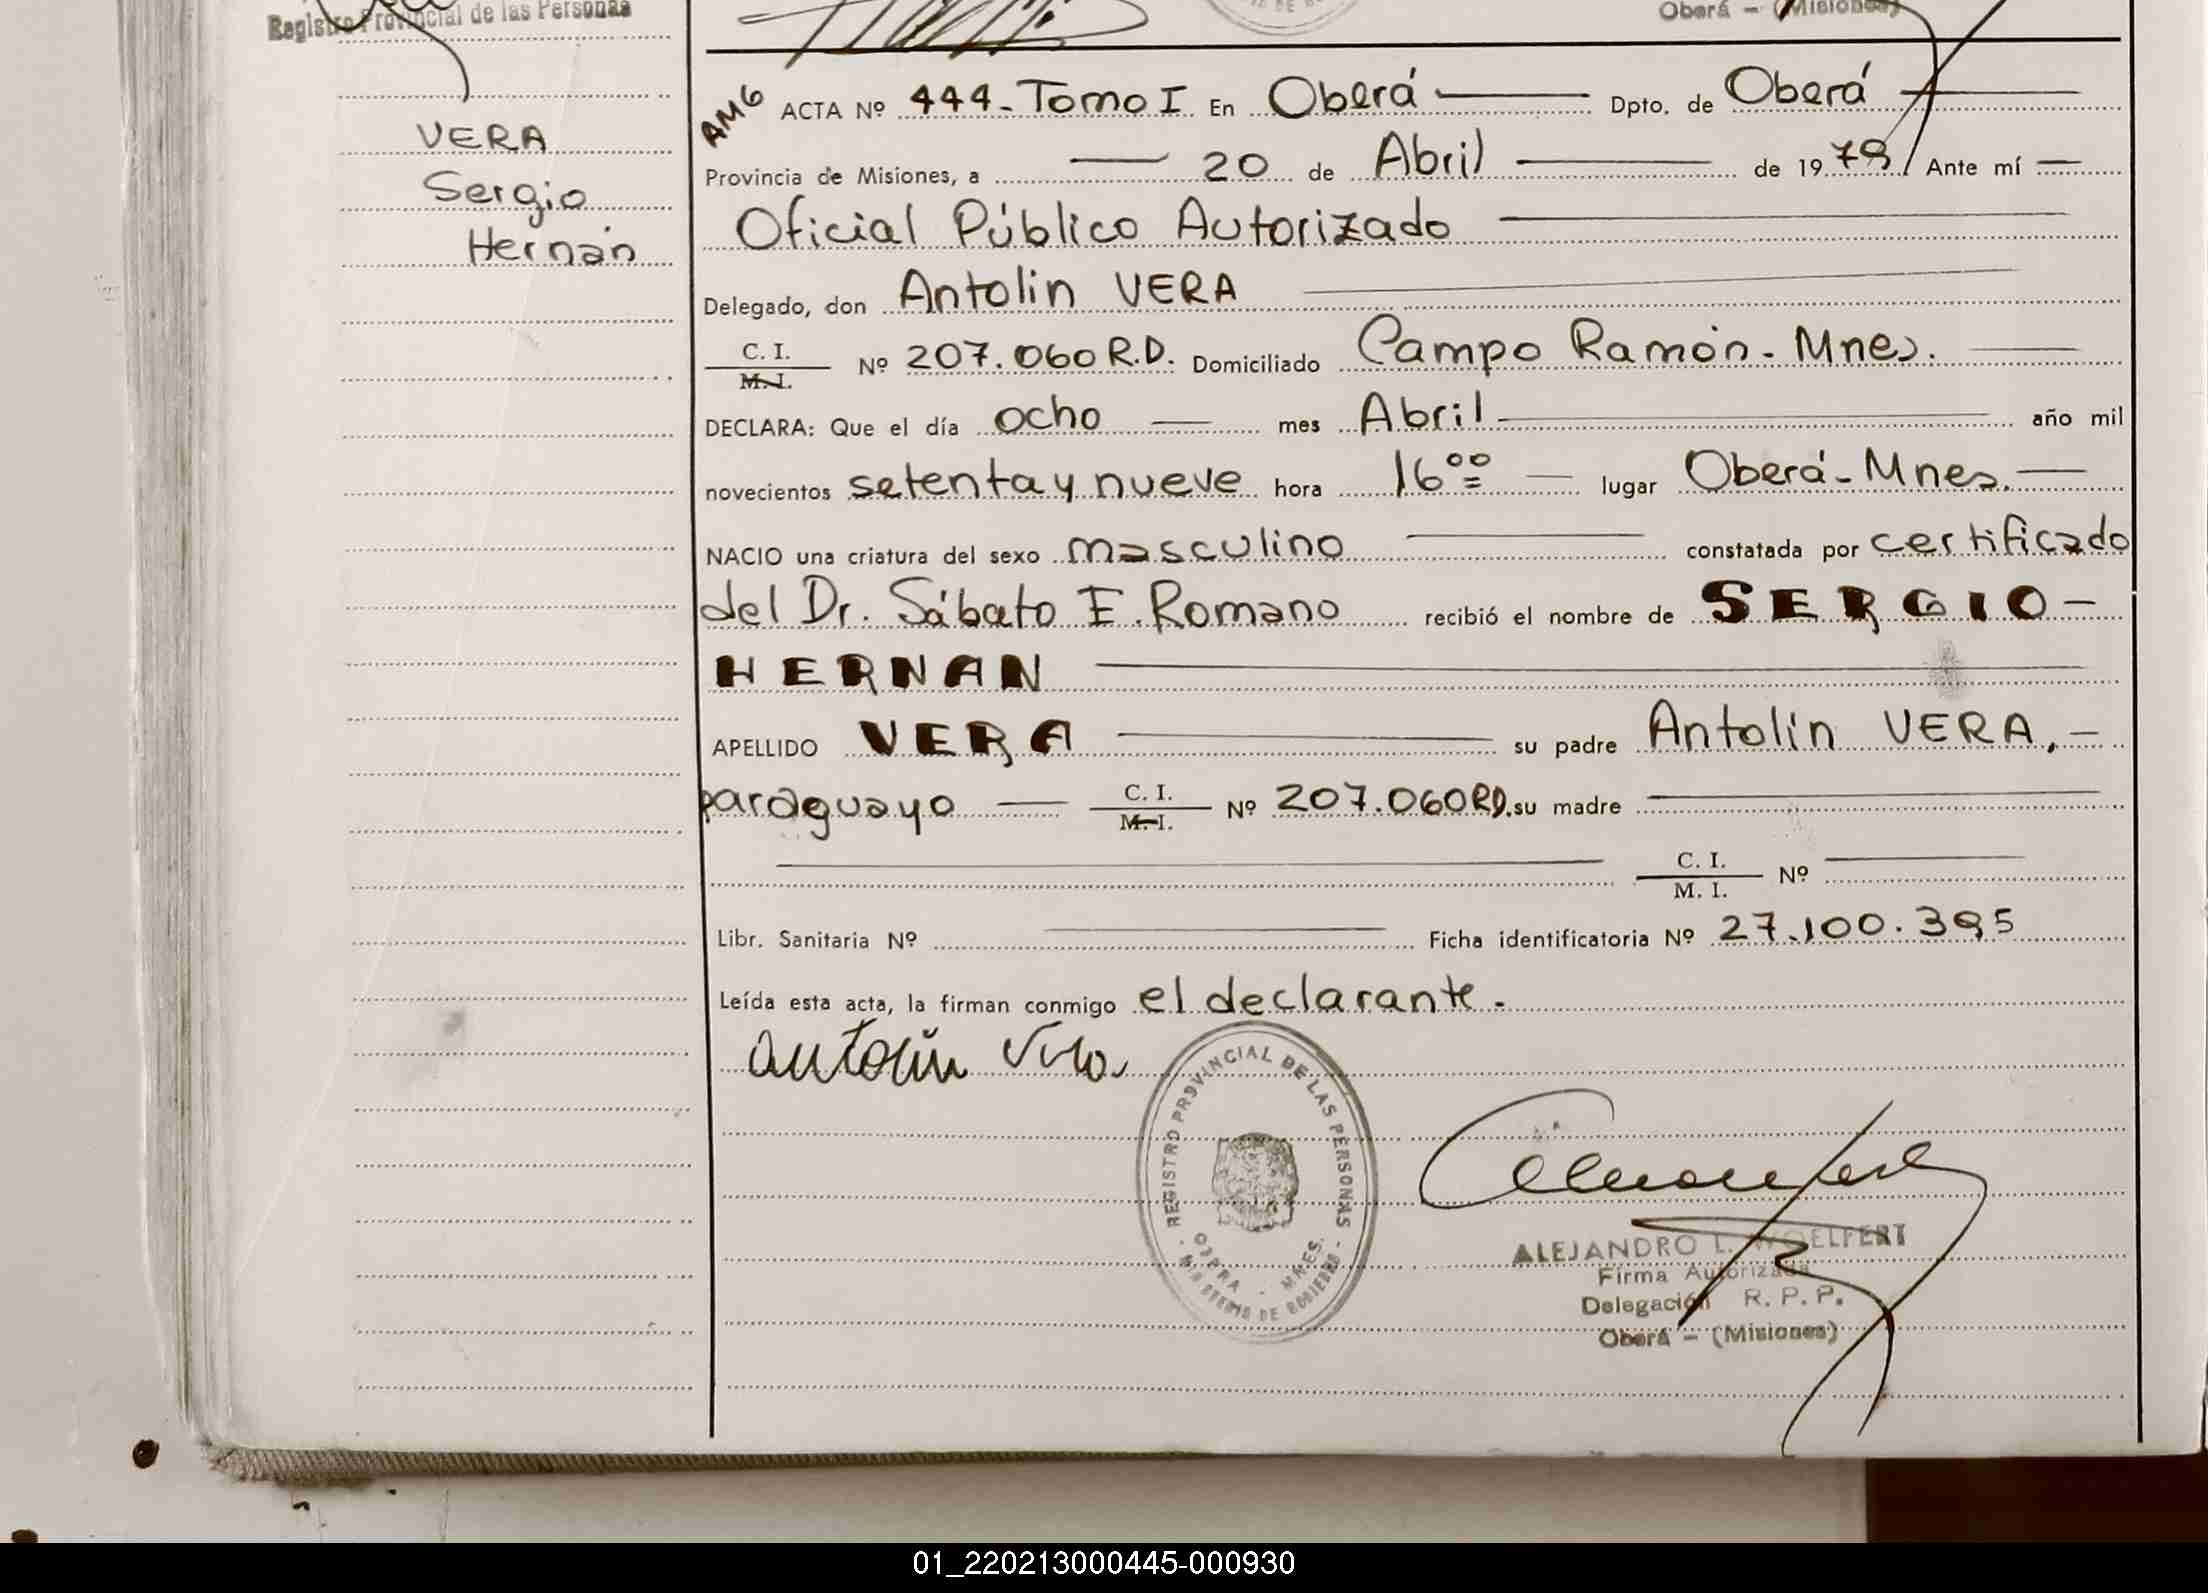 Registro Provincial de las Personas
Oberá - (Misiones)
VERA
Sergio
Hernán
AMG ACTA Nº 444- Tomo I En Oberá Dpto. de Oberá
Provincia de Misiones, a 20 de Abril de 1979 Ante mí
Oficial Público Autorizado
Delegado, don Antolin VERA
C. I. / M. I. Nº 207.060 R.D. Domiciliado Campo Ramón - Mnes.
DECLARA: Que el día ocho mes Abril año mil
novecientos setenta y nueve hora 16 00 lugar Oberá - Mnes.
NACIO una criatura del sexo masculino constatada por certificado
del Dr. Sábato E. Romano recibió el nombre de SERGIO -
HERNAN
APELLIDO VERA su padre Antolín VERA. -
paraguayo C. I. / M. I. Nº 207.060 RD. su madre
C. I. / M. I. Nº
Libr. Sanitaria Nº Ficha identificatoria Nº 27.100.395
Leída esta acta, la firman conmigo el declarante.
Antolín Vera
REGISTRO PROVINCIAL DE LAS PERSONAS
OBERA - MNES.
MINISTERIO DE GOBIERNO
ALEJANDRO L. WOELFERT
Firma Autorizada
Delegación R. P. P.
Oberá - (Misiones)
01_220213000445-000930